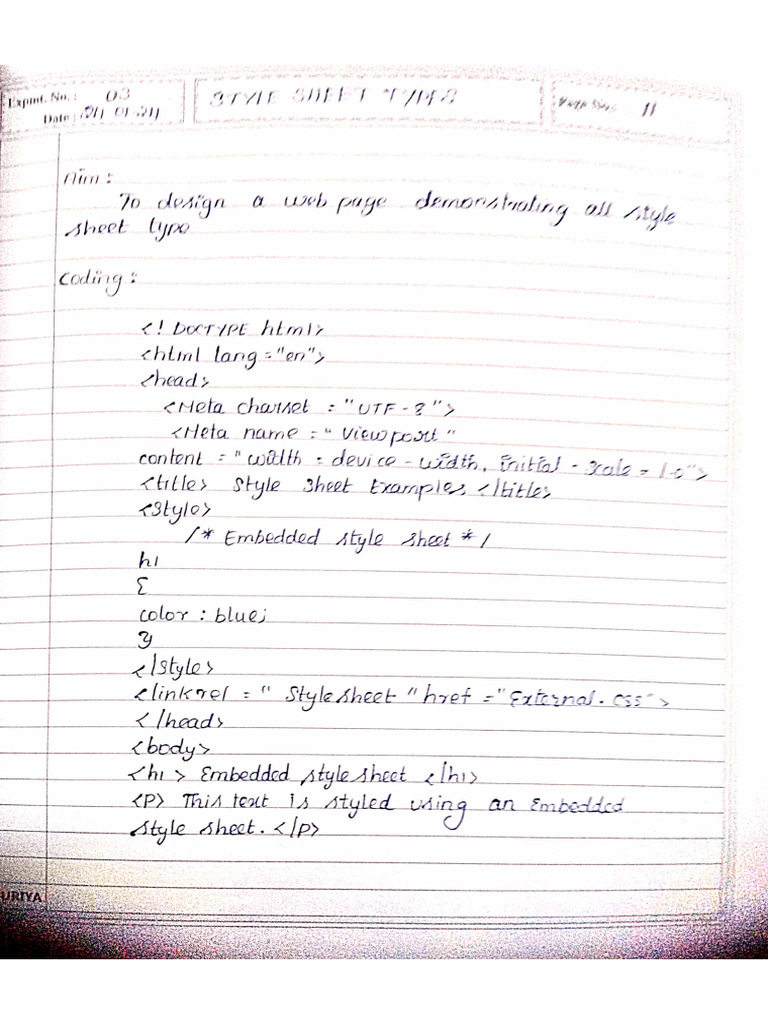 Expmt. No.: 03
Date: 24 01 24
STYLE SHEET TYPES
Page No. 11
Aim:
To design a web page demonstrating all style
sheet type
Coding:
<! DOCTYPE html>
<html lang="en">
<head>
<Meta charset = "UTF-8">
<Meta name = "Viewport"
content = "width = device-width, initial-scale = 1.0">
<title> Style Sheet Examples </title>
<style>
/* Embedded style sheet */
h1
{
color : blue;
}
</style>
<linkrel = " Stylesheet "href ="External.css">
</head>
<body>
<h1 > Embedded stylesheet </h1>
<P> This text is styled using an Embedded
style sheet. </p>
URIYA